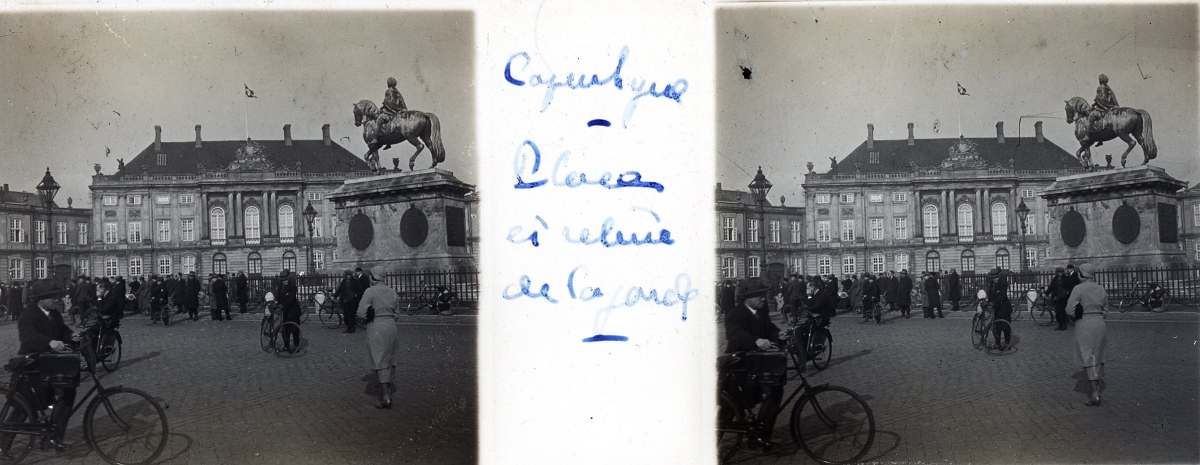 Copenhague
Place
et relève
de la garde